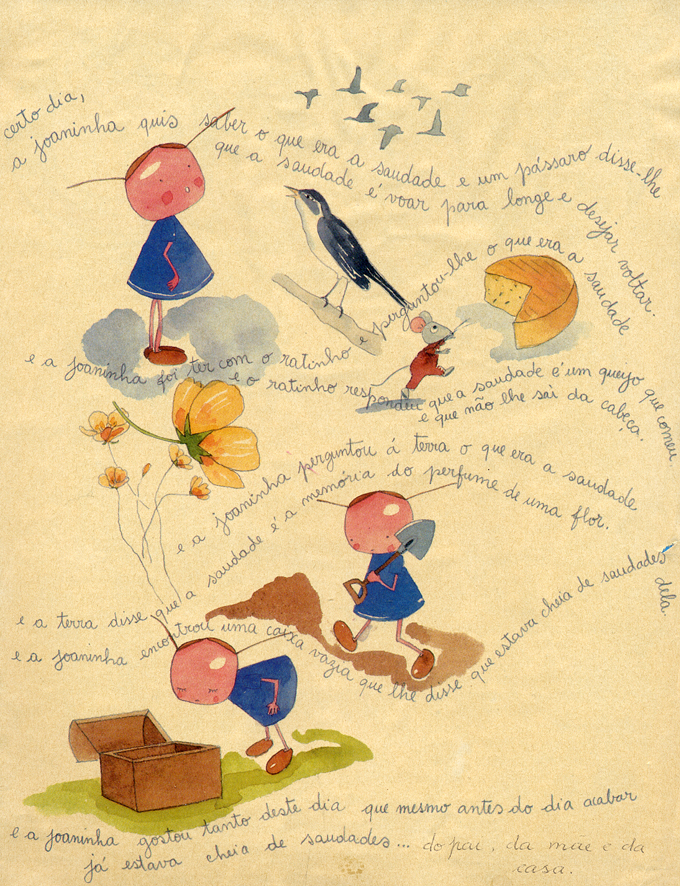 certo dia,
a joaninha quis saber o que era a saudade e um pássaro disse-lhe
que a saudade é voar para longe e desejar voltar.
e a joaninha foi ter com o ratinho e perguntou-lhe o que era a saudade
e o ratinho respondeu que a saudade é um queijo que comeu
e que não lhe sai da cabeça.
e a joaninha perguntou á terra o que era a saudade
e a terra disse que a saudade é a memória do perfume de uma flor.
e a joaninha encontrou uma caixa vazia que lhe disse que estava cheia de saudades
dela.
e a joaninha gostou tanto deste dia que mesmo antes do dia acabar
já estava cheia de saudades... do pai, da mae e da
casa.